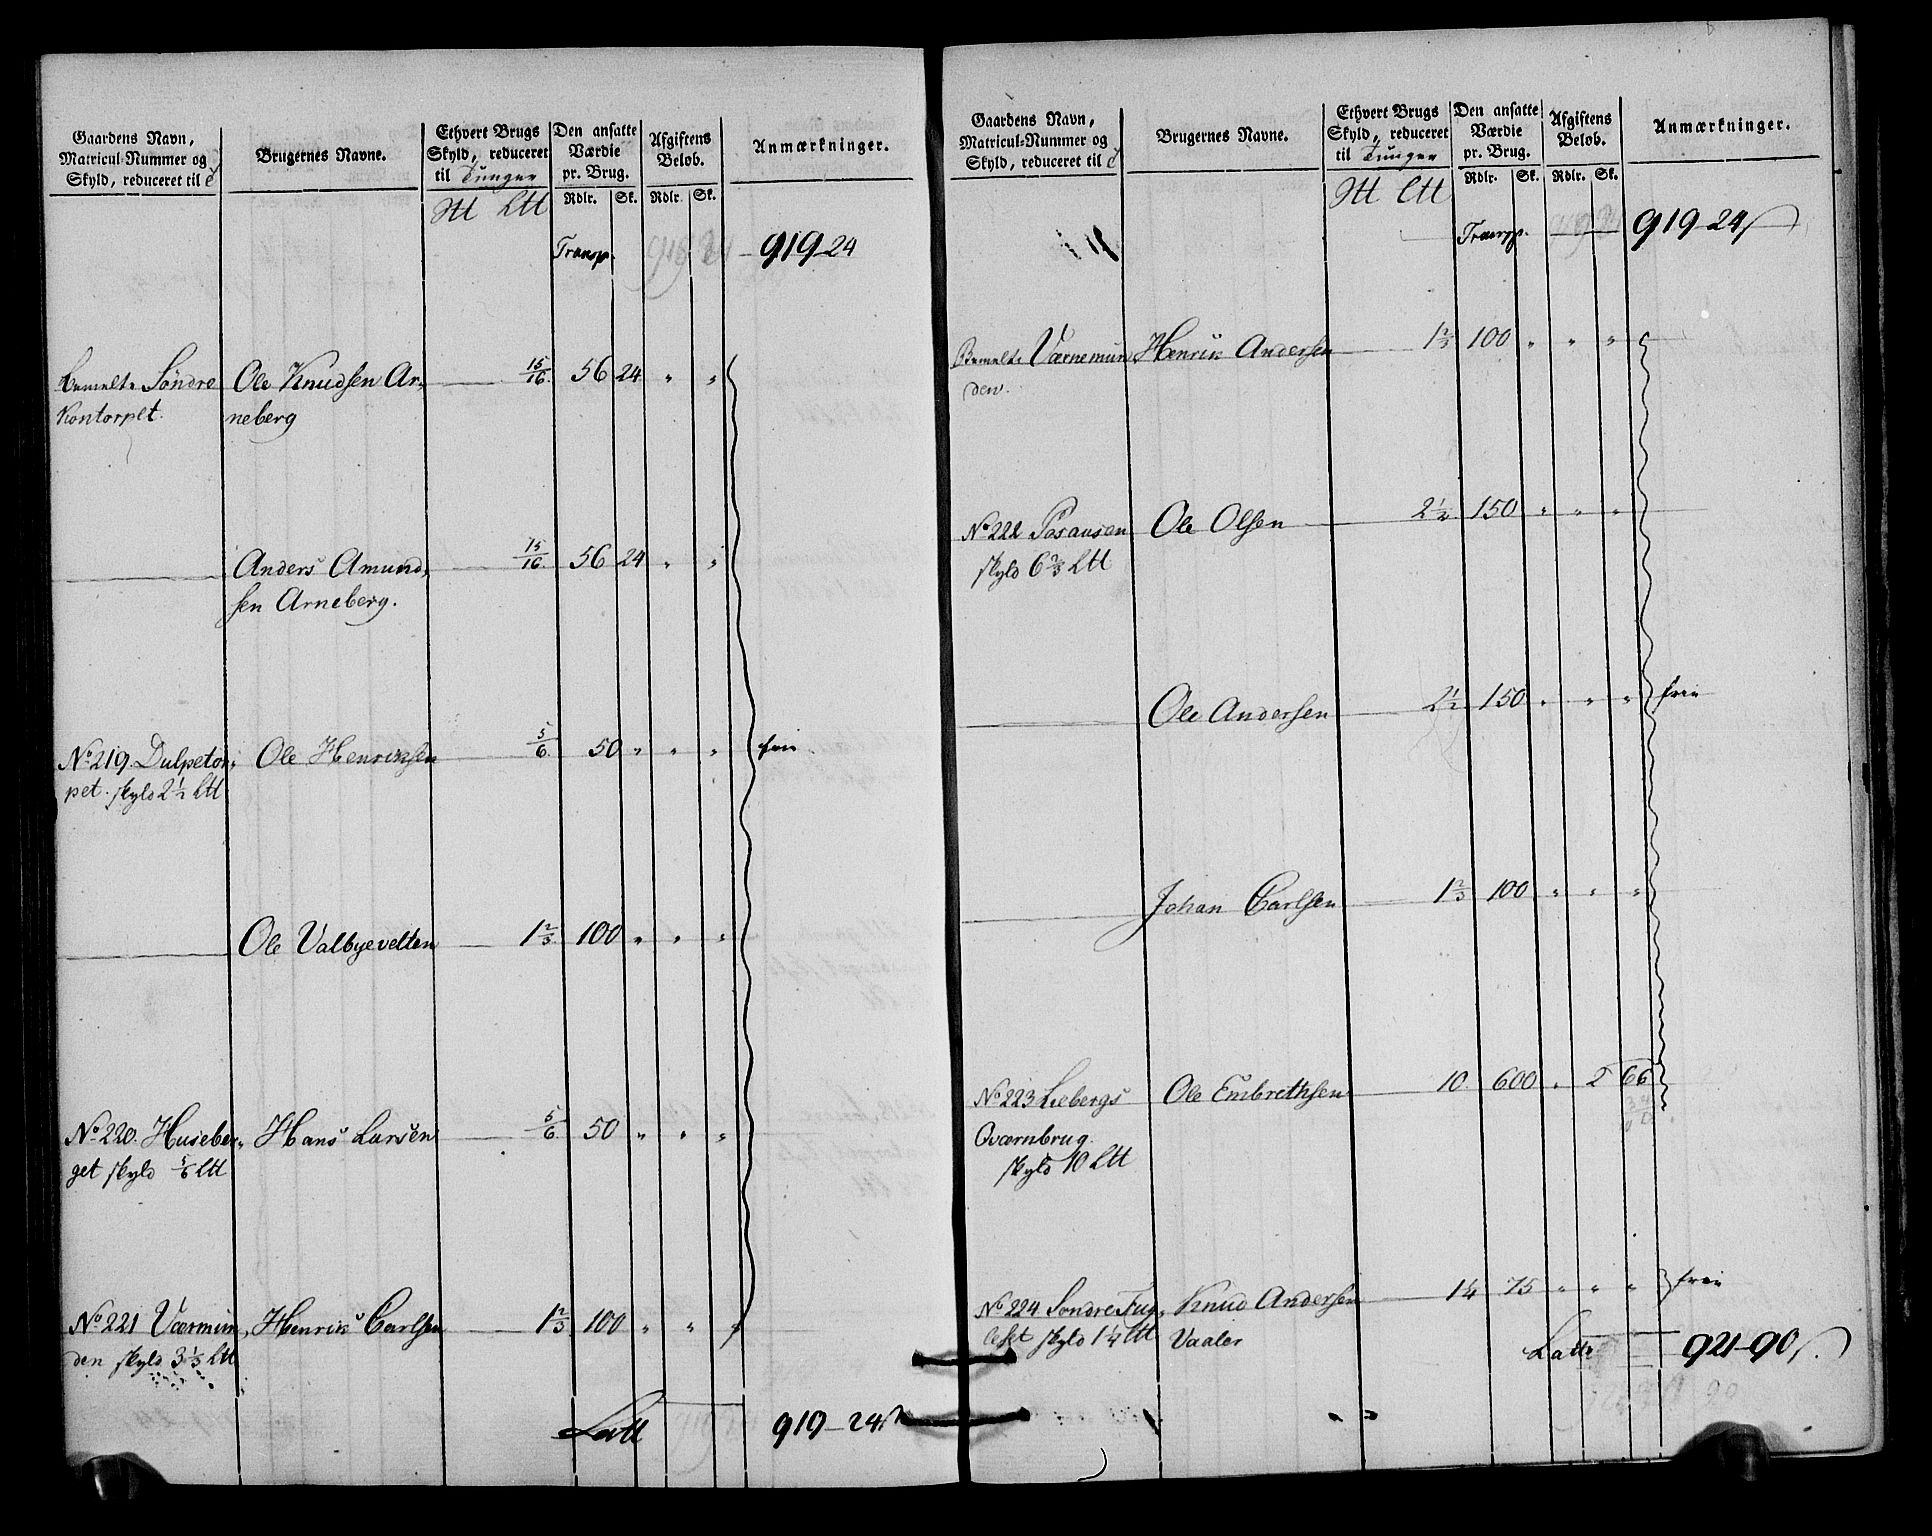 Gaardens Navn,
Matricul-Nummer og
Skyld, reduceret til
Brugernes Navne.
Ethvert Brugs
Skyld, reduceret
til Tunger
Den ansatte
Værdie
pr. Brug.
Afgiftens
Beløb.
Anmærkninger.
Rdlr. Sk. Rdlr. Sk.
Transp. 919-24
bemelte Söndre Ole Knudsen Ar- 15/16 56 24 " "
Kontorpet. neberg
Anders Amund- 15/16. 56 24 " "
sen Arneberg.
No 219. Dulpetor- Ole Henriksen 5/6. 50 " " " frie.
pet. skyld 2 1/2 Ltt
Ole Valbyevelten 1 2/3 100 " " "
No 220. Huseber- Hans Larsen 5/6. 50 " " "
get skyld 5/6 Ltt
No 221 Værmun- Henrik Carlsen 1 2/3 100 " " "
den skyld 3 1/3 Ltt
Latt 919-24
Gaardens Navn,
Matricul-Nummer og
Skyld, reduceret til
Brugernes Navne.
Ethvert Brugs
Skyld, reduceret
til Tunger
Den ansatte
Værdie
pr. Brug.
Afgiftens
Beløb.
Anmærkninger.
Rdlr. Sk. Rdlr. Sk.
Transp. 919-24
Bemelte Værnemun Henrik Andersen 1 2/3 100 " " "
den.
No 222 Posausen Ole Olsen 2 1/2 150 " " "
skyld 6 2/3 Ltt
Ole Andersen 2 1/2 150 " " " frie
Johan Carlsen 1 2/3 100 " " "
No 223 Lebergs Ole Embrethsen 10. 600 " 2 66
Qværnbrug.
skyld 10 Ltt
No 224 Søndre Fug- Knud Andersen 1 1/4 75 " " " frie
leset skyld 1 1/4 Ltt Vaaler
Latt 921-90